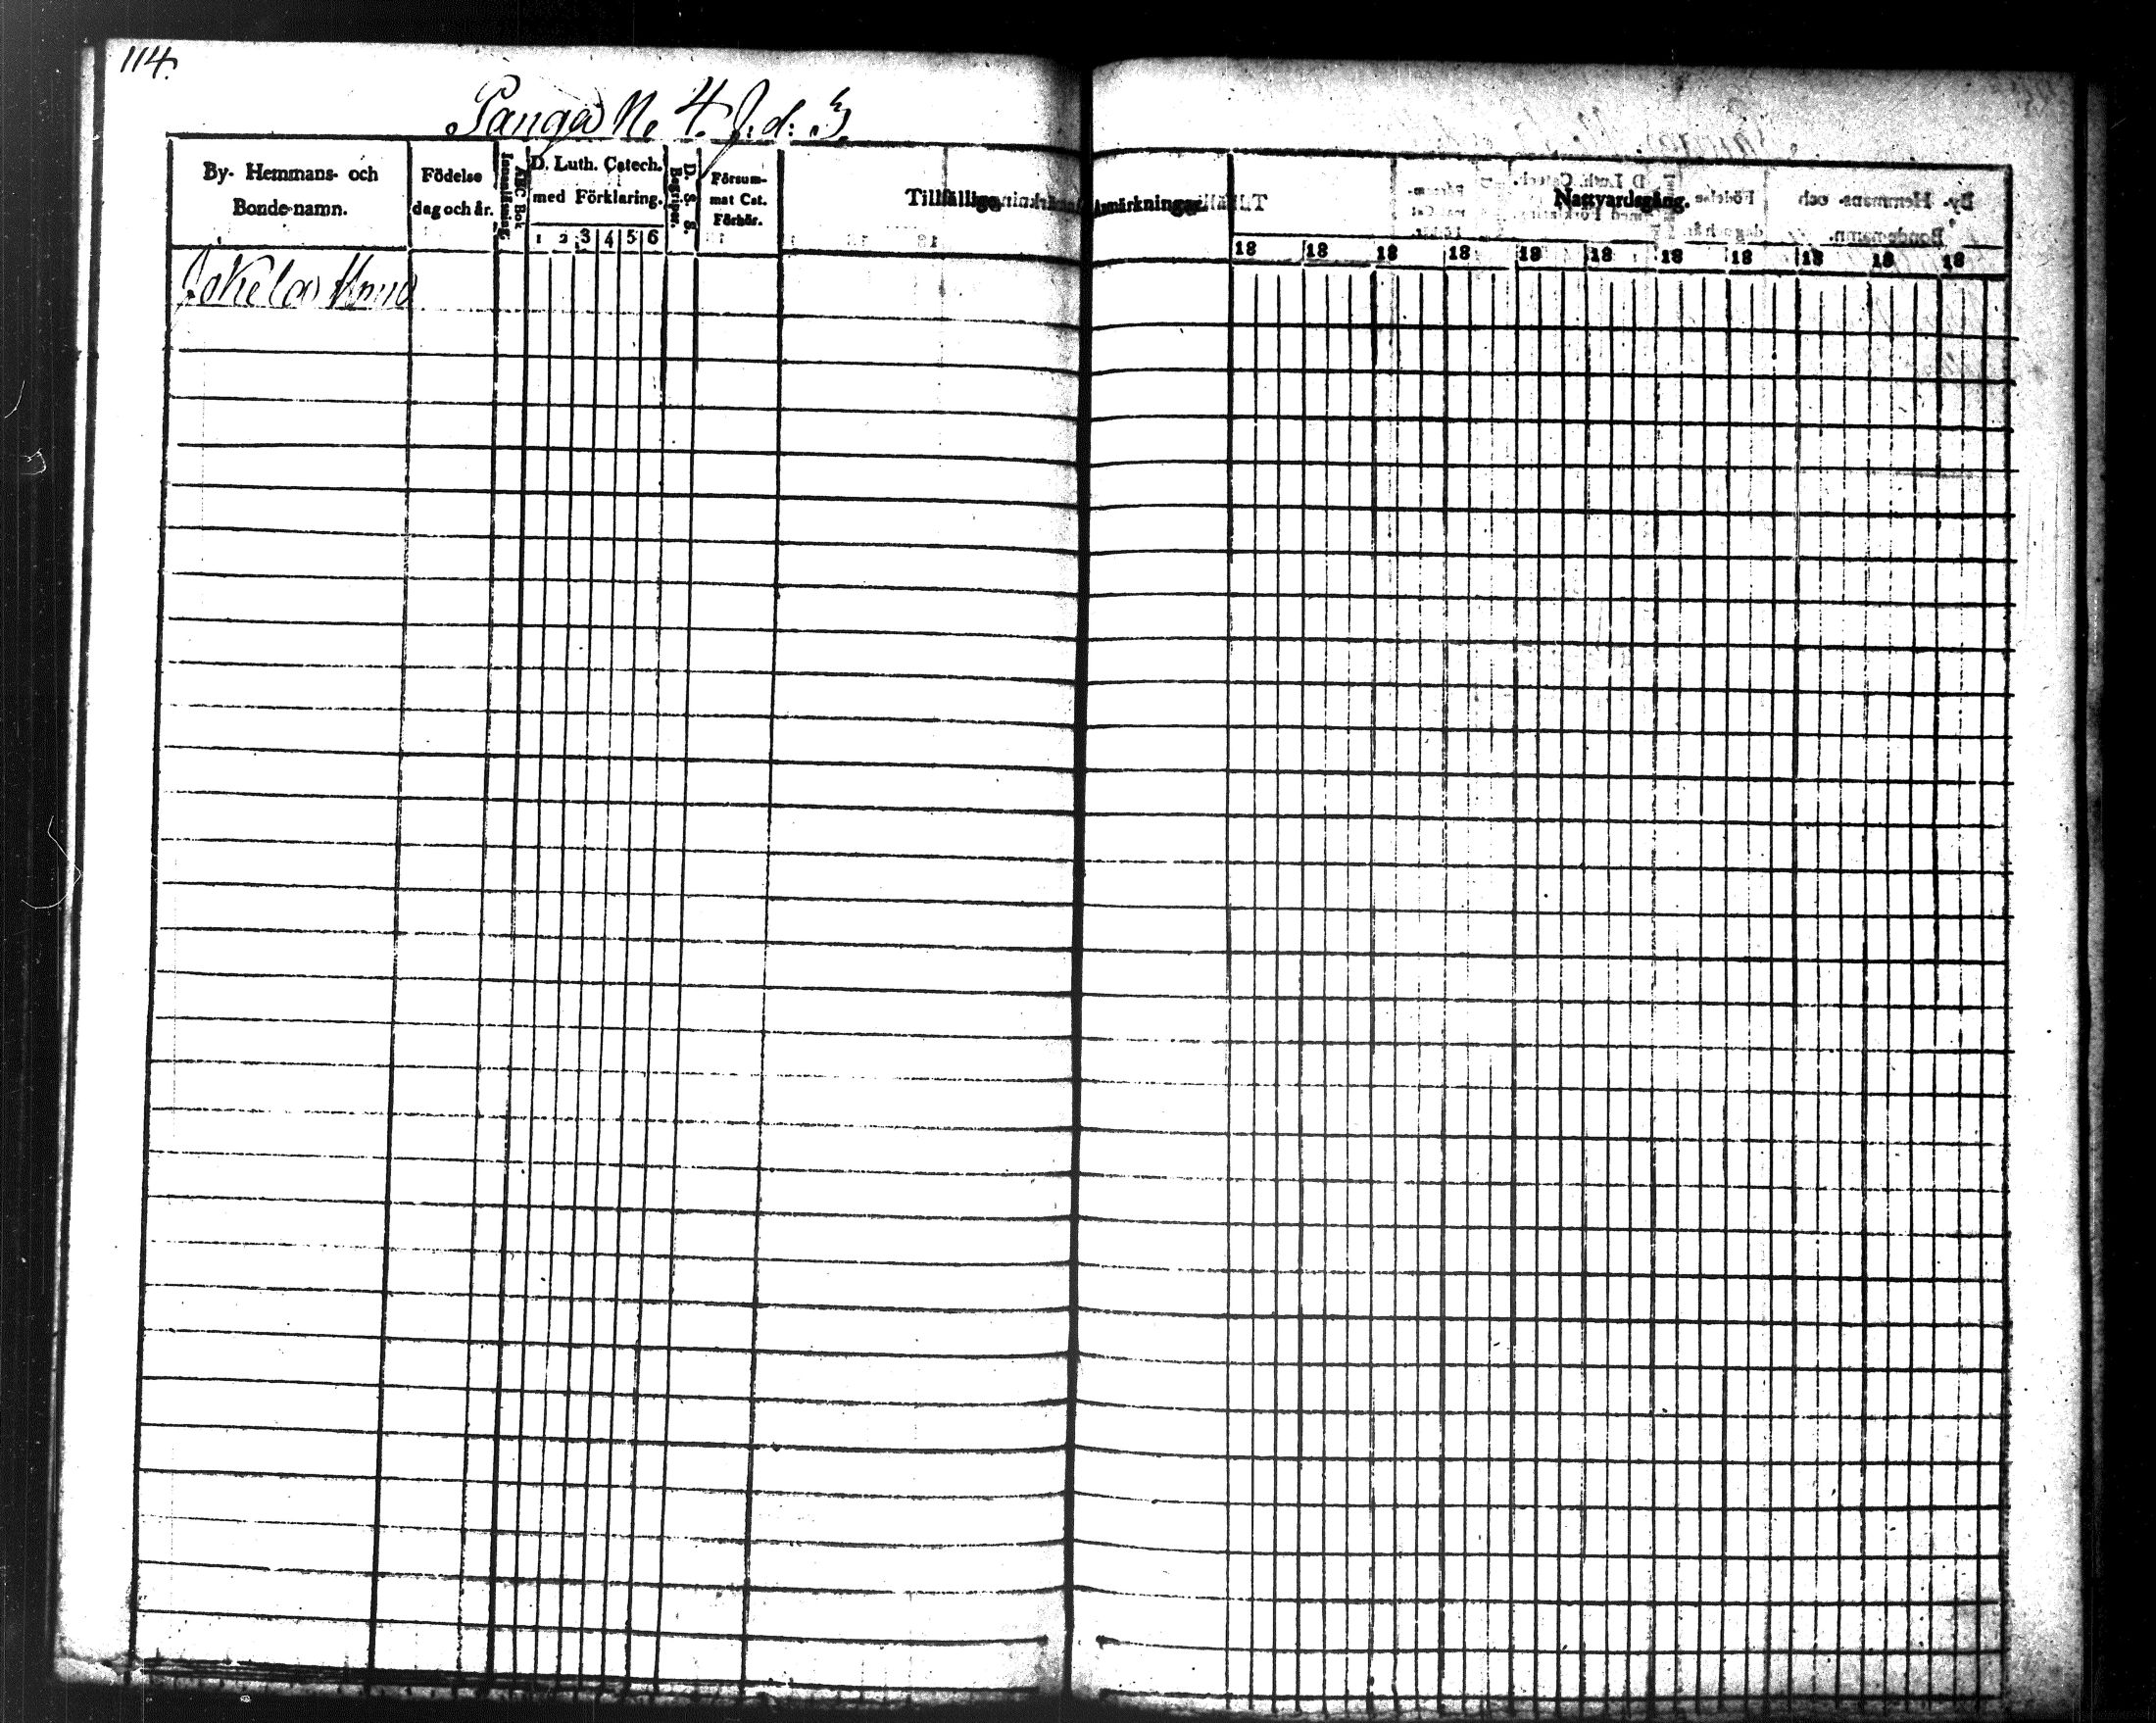 114.
Panga N. 4. J. d: 3.
By- Hemmans- och
Bonde-namn.
Födelse
dag och år.
ABC Bok
Innanläsning.
D. Luth. Catech.
med Förklaring.
1 2 3 4 5 6
D. S. S.
Begriper.
Försum-
mat Cat.
Förhör.
Tillfällige
Anmärkningar.
Nattvardsgång.
18 18 18 18 18 18 18 18 18 18 18